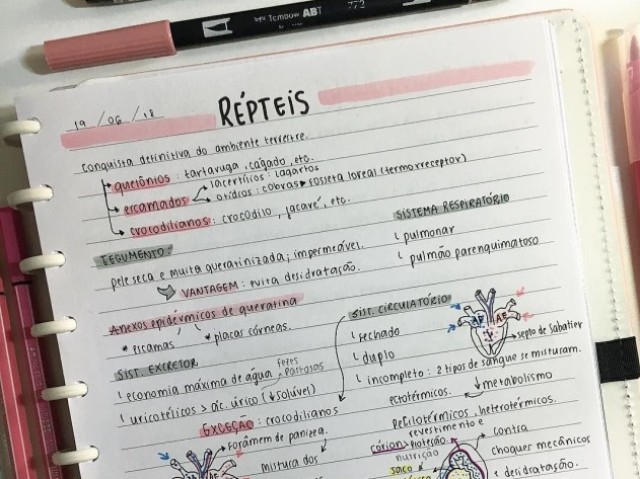 Tombow ABT
772
19 / 06 / 18
RÉPTEIS
Conquista definitiva do ambiente terrestre.
queiônios: tartaruga, cagado, etc.
escamados
lacertílios: lagartos
ofídios: cobras fosseta loreal (termorreceptor)
crocodilianos: crocodilo, jacaré, etc.
TEGUMENTO
pele seca e muita queratinizada; impermeável.
VANTAGEM: evita desidratação.
Anexos epidérmicos de queratina
* escamas
* placas córneas.
SISTEMA RESPIRATÓRIO
pulmonar
pulmão parenquimatoso
SIST. CIRCULATÓRIO
fechado
duplo
incompleto: 2 tipos de sangue se misturam.
septo de Sabatier
AE
SIST. EXCRETOR
economia máxima de água
fezes
pastosas
uricotélicos > ác. úrico (↓ solúvel)
ectotérmicos. ↓ metabolismo
pecilotérmicos, heterotérmicos.
EXCEÇÃO: crocodilianos
forâmem de panizza.
mistura dos
córion> proteção
revestimento e
nutrição
saco
contra
choques mecânicos
e desidratação.